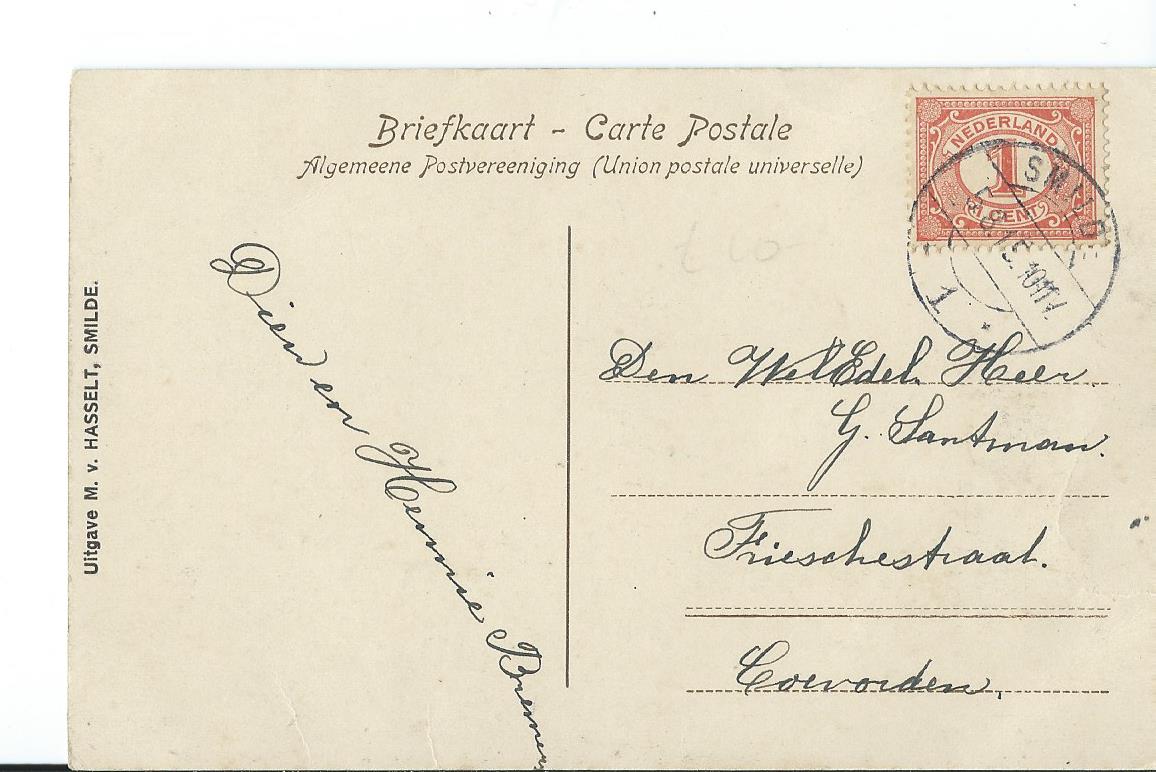 Briefkaart - Carte Postale
Algemeene Postvereeniging (Union postale universelle)
NEDERLAND
1
1 CENT
SMILDE
Uitgave M. v. HASSELT, SMILDE.
Dien en Hennie
Den WelEdel. Heer
G. Santman.
Frieschestraat.
Coevorden.